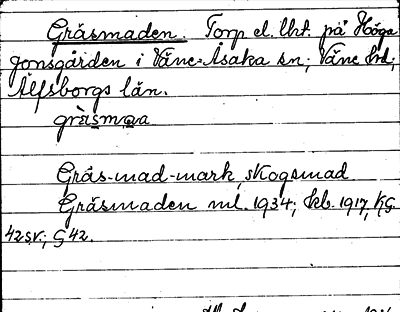 Gräsmaden. Torp el. lht. på Höga
jonsgården i Väne-Åsaka sn; Väne hd;
Älfsborgs län.
gräsmɑa
Gräs-mad-mark, skogsmad
Gräsmaden ml. 1934; kb. 1917, KG.
42sv; G42.